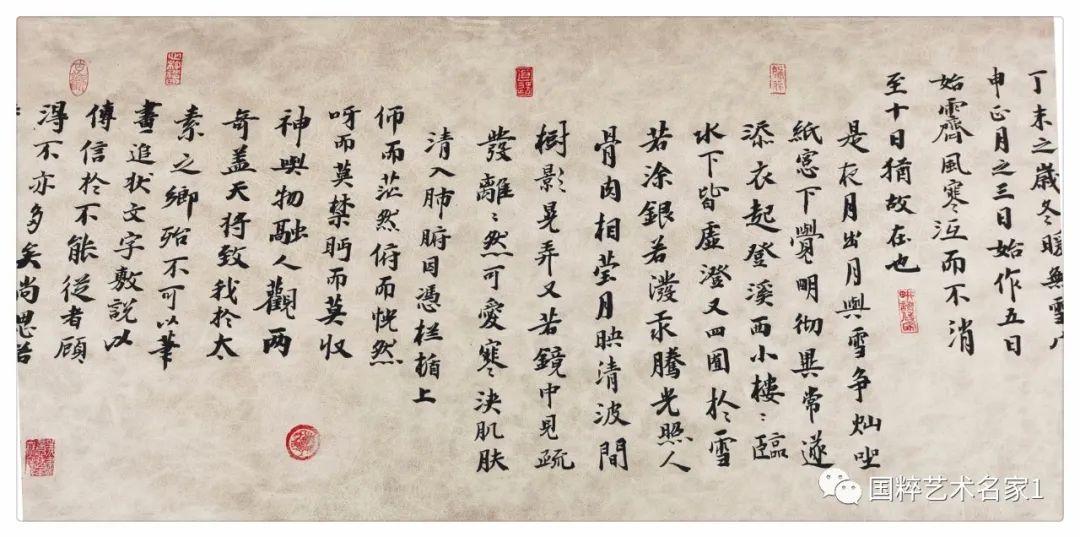 丁未之歲冬暖無雪
申正月之三日始作五日
始霽風寒沍而不消
至十日猶故在也
是夜月出月與雪争灿坐
紙窓下覺明彻異常遂
添衣起登溪西小樓〻臨
水下皆虛澄又四圍於雪
若涂銀若潑汞騰光照人
骨肉相莹月映清波間
樹影晃弄又若鏡中見疏
發離〻然可愛寒浃肌肤
清入肺腑因憑栏楯上
仰而茫然俯而恍然
呀而莫禁眄而莫収
神與物融人觀两
奇盖天将致我於太
素之鄉殆不可以筆
畫追狀文字敷説以
傳信於不能從者顧
得不亦多矣尚思若
国粹艺术名家1